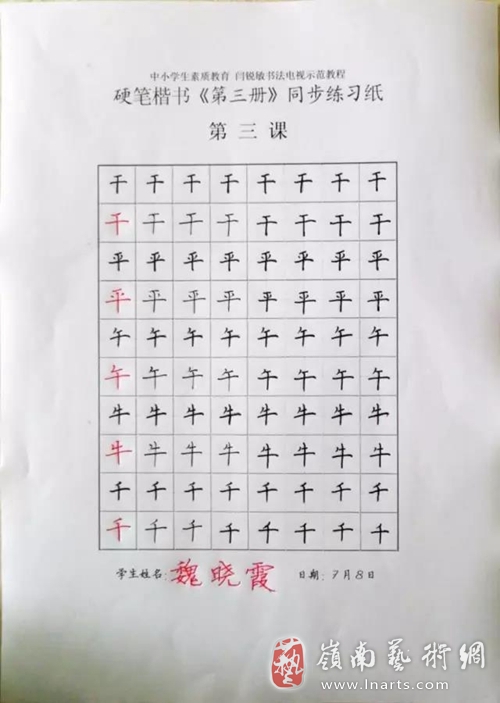 中小学生素质教育 闫锐敏书法电视示范教程
硬笔楷书《第三册》同步练习纸
第三课
干干干干干干干干
干干干干干干干干
平平平平平平平平
平平平平平平平平
午午午午午午午午
午午午午午午午午
牛牛牛牛牛牛牛牛
牛牛牛牛牛牛牛牛
千千千千千千千千
千千千千千千千千
学生姓名:魏晓霞 日期:7月8日
藝 嶺南藝術網
www.lnarts.com